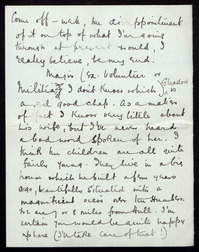 Come off – well, the disappointment
of it on top of what I'm going
through at present would, I
really believe, be my end.
Major (ex Volunteer or
Militia I don't know which)
is a good chap. As a matter
of fact I know very little about
his wife, but I've never heard
a bad word spoken of her. I
think his children are all quite
fairly young. They live in a big
house which he built a few years
ago, beautifully situated with a
magnificent view over the Humber.
some 7 or 8 miles from Hull. I'm
certain you would be quite happy
there (I'd take care of that!)